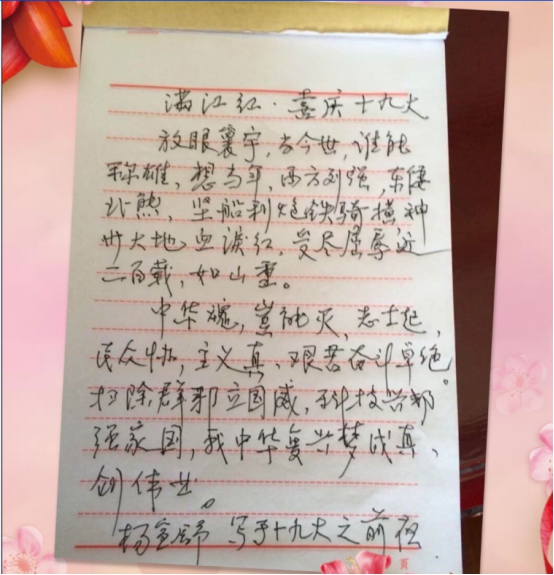 满江红·喜庆十九大
放眼寰宇,当今世,谁能
称雄,想当年,西方列强,东倭
北熊,坚船利炮铁骑横神
州大地血泪红,受尽屈辱近
二百载,如山重。
中华魂,岂能灭,志士起,
民众恸,主义真、艰苦奋斗卓绝。
扫除群邪立国威,科技兴邦
强家国,我中华复兴梦成真、
创伟业。
杨 写于十九大之前夜
页